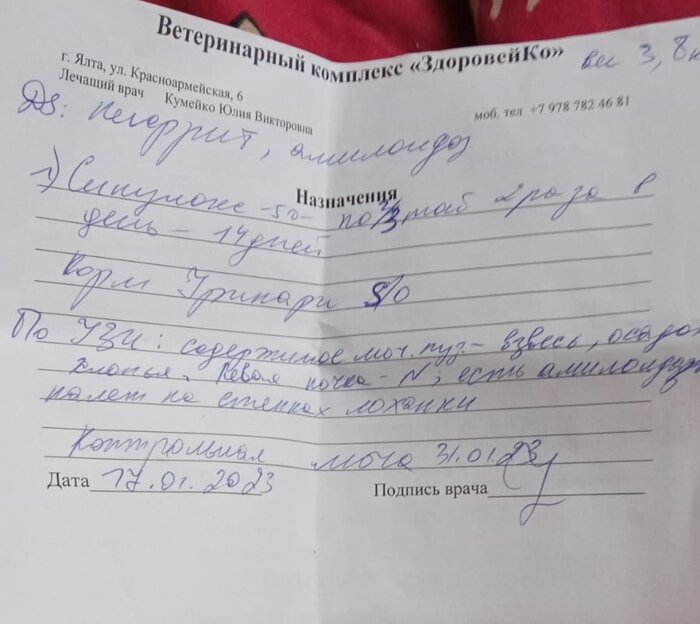 Ветеринарный комплекс «ЗдоровейКо» вес 3,8к
г. Ялта, ул. Красноармейская, 6
Лечащий врач Кумейко Юлия Викторовна
моб. тел +7 978 782 46 81
DS: Нефрит, амилоидоз
Назначения
1) Синулокс -50- по 2/3 таб 2 раза в
день - 14 дней
Корм Уринари S/O
По УЗИ: содержимое моч. пуз. - взвесь, осадок
хлопья. Левая почка - N; есть амилоидоз
налет на стенках лоханки
Контрольная моча 31.01.23
Дата 17.01.2023
Подпись врача